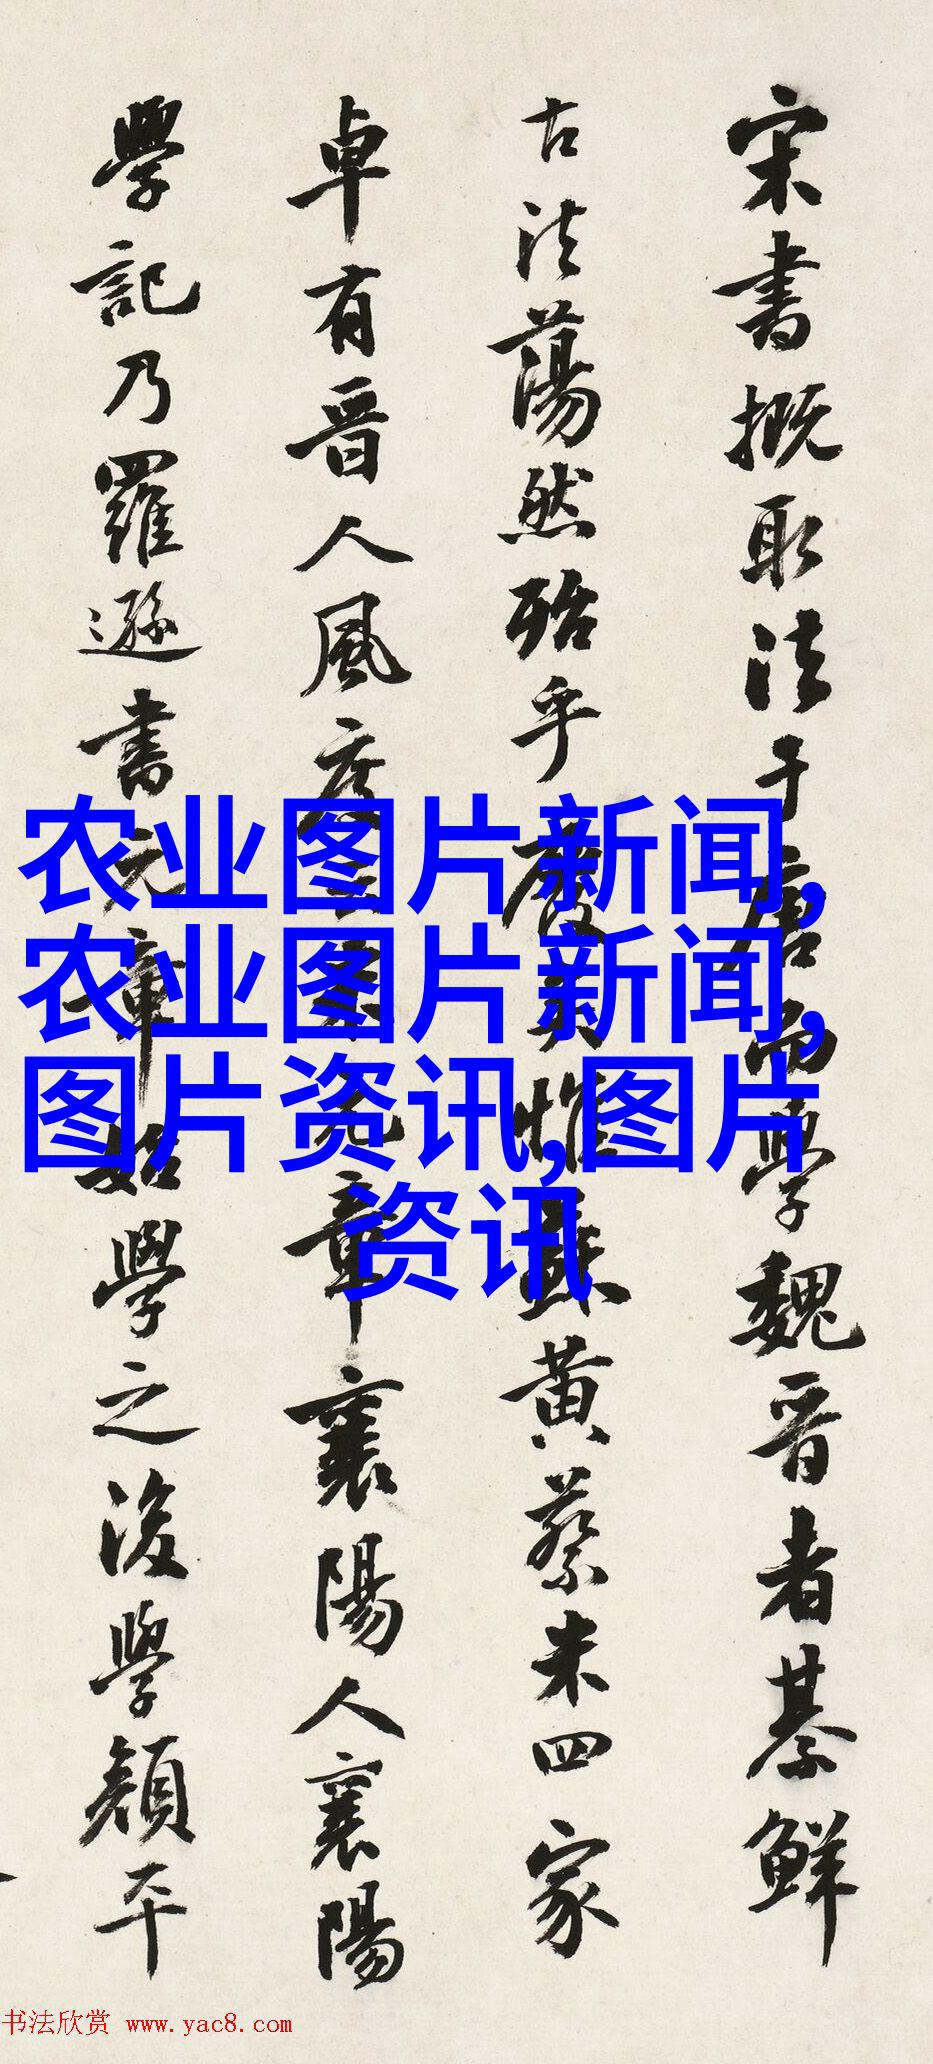 宋書概取法于唐而學魏晉者綦鮮
古法蕩然殆乎廢矣惟蘇黃蔡米四家
卓有晉人風度元章襄陽人襄陽
學記乃羅遜書元章始學之後學顏平
农业图片新闻,
农业图片新闻,
图片资讯,图片
资讯
书法欣赏 www.yac8.com